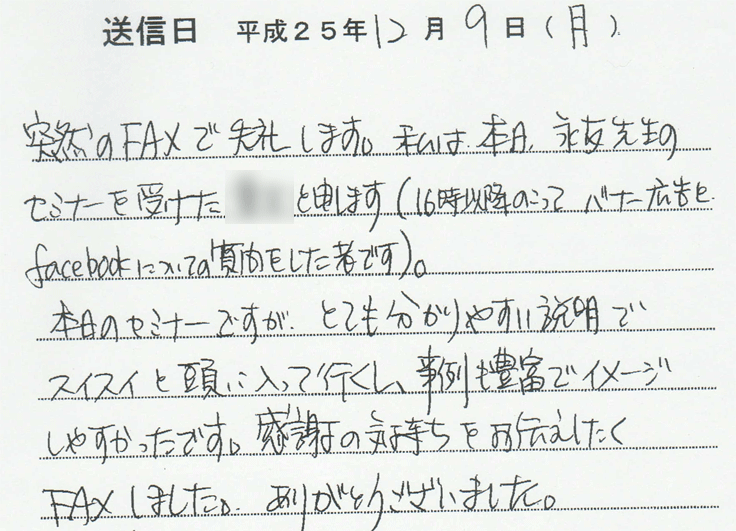 送信日 平成25年12月9日(月)
突然のFAXで失礼します。私は本日、永友先生の
セミナーを受けた と申します(16時以降のこって バナー広告と
facebookについての質問をした者です)。
本日のセミナーですが、とても分かりやすい説明で
スイスイと頭に入って行くし、事例も豊富でイメージ
しやすかったです。感謝の気持ちをお伝えしたく
FAXしました。ありがとうございました。